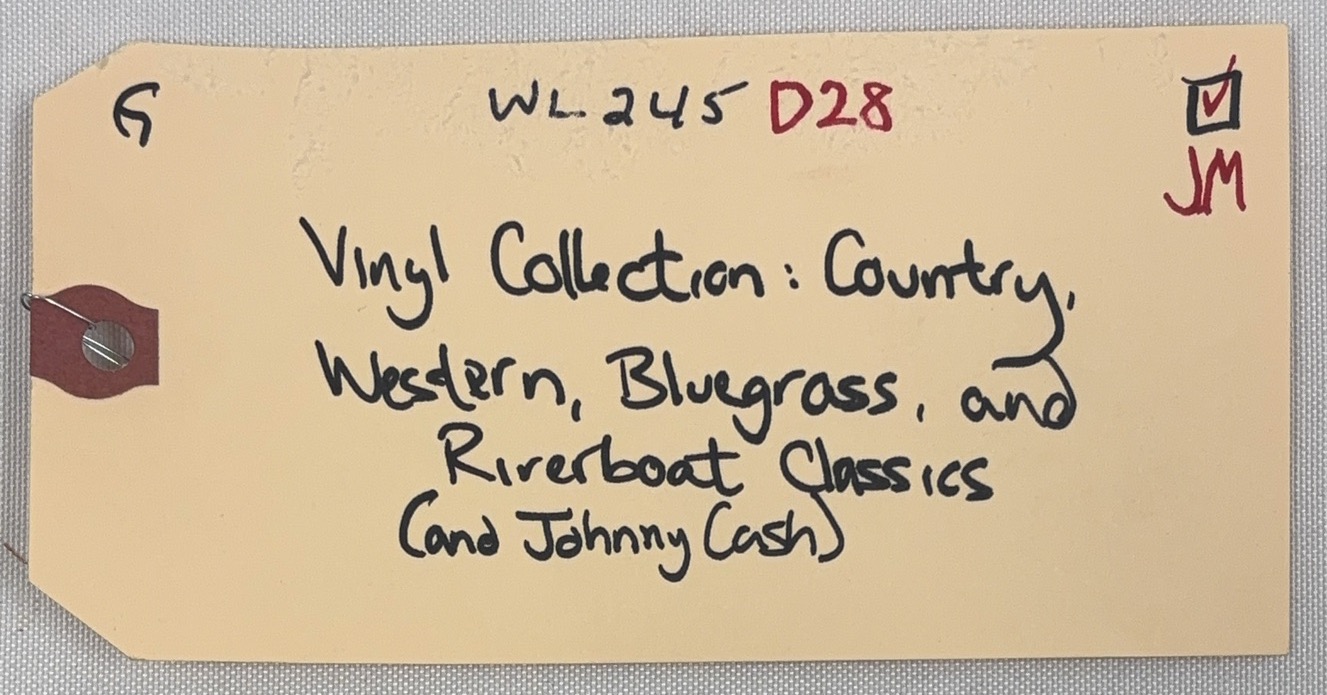 G WL245 D28 ☑
JM
Vinyl Collection: Country,
Western, Bluegrass, and
Riverboat Classics
(and Johnny Cash)